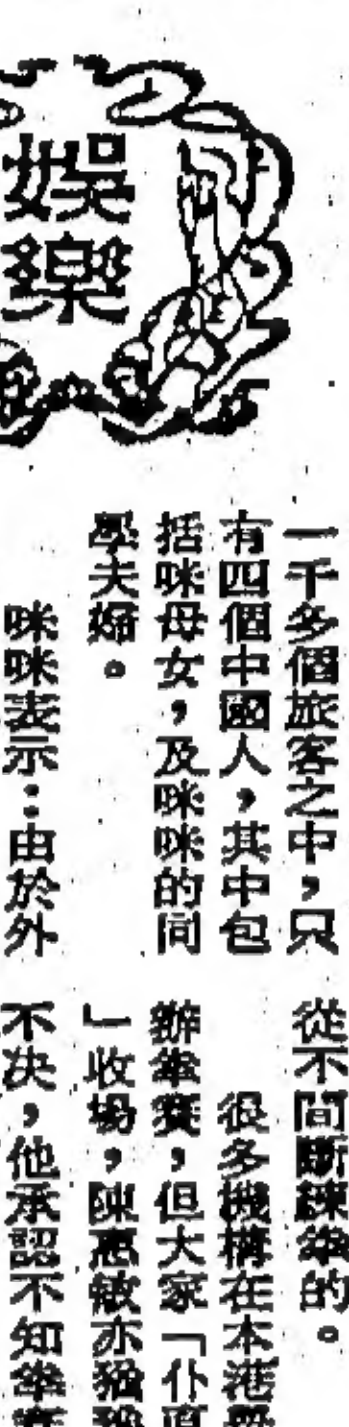 娛樂
一千多個旅客之中，只
有四個中國人，其中包
括咪母女，及咪咪的同
學夫婦。
咪咪表示：由於外
從不間斷練拳的。
很多機構在本港
辦拳賽，但大家「仆直
」收場，陳惠敏亦猶
不决，他承認不知拳